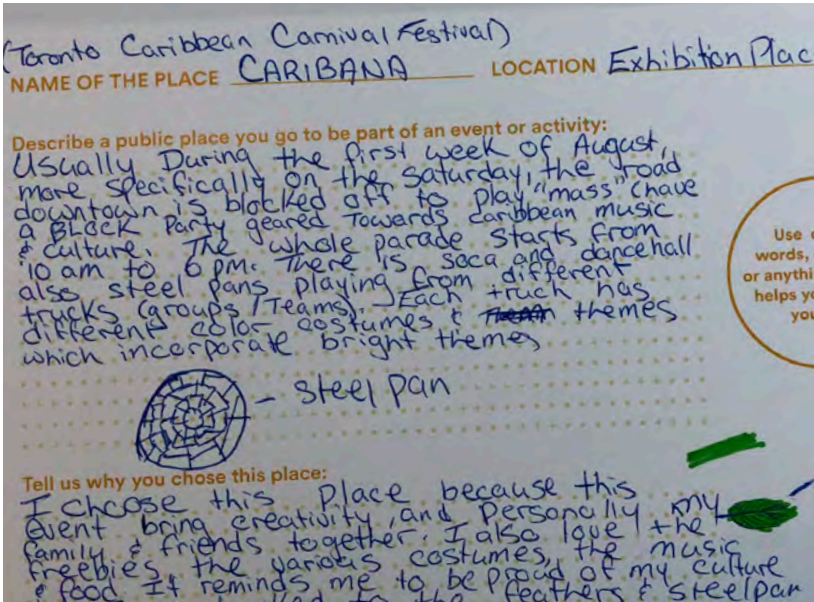 (Toronto Caribbean Carnival Festival)
NAME OF THE PLACE CARIBANA LOCATION Exhibition Plac
Describe a public place you go to be part of an event or activity:
Usually During the first week of August,
more specifically on the saturday, the road
downtown is blocked off to play "mass" (have
a BLOCK Party geared Towards caribbean music
& culture. The whole parade starts from
10 am to 6 pm. There is soca and dancehall
also steel pans playing from different
trucks (groups/Teams). Each truck has
different color costumes & themes
which incorporate bright themes
Use
words,
or anythi
helps yo
you
steel pan
Tell us why you chose this place:
I choose this place because this
event bring creativity, and personally my
family & friends together. I also love the
freebies, the various costumes, the music
& food. It reminds me to be proud of my culture
to the feathers & steelpan